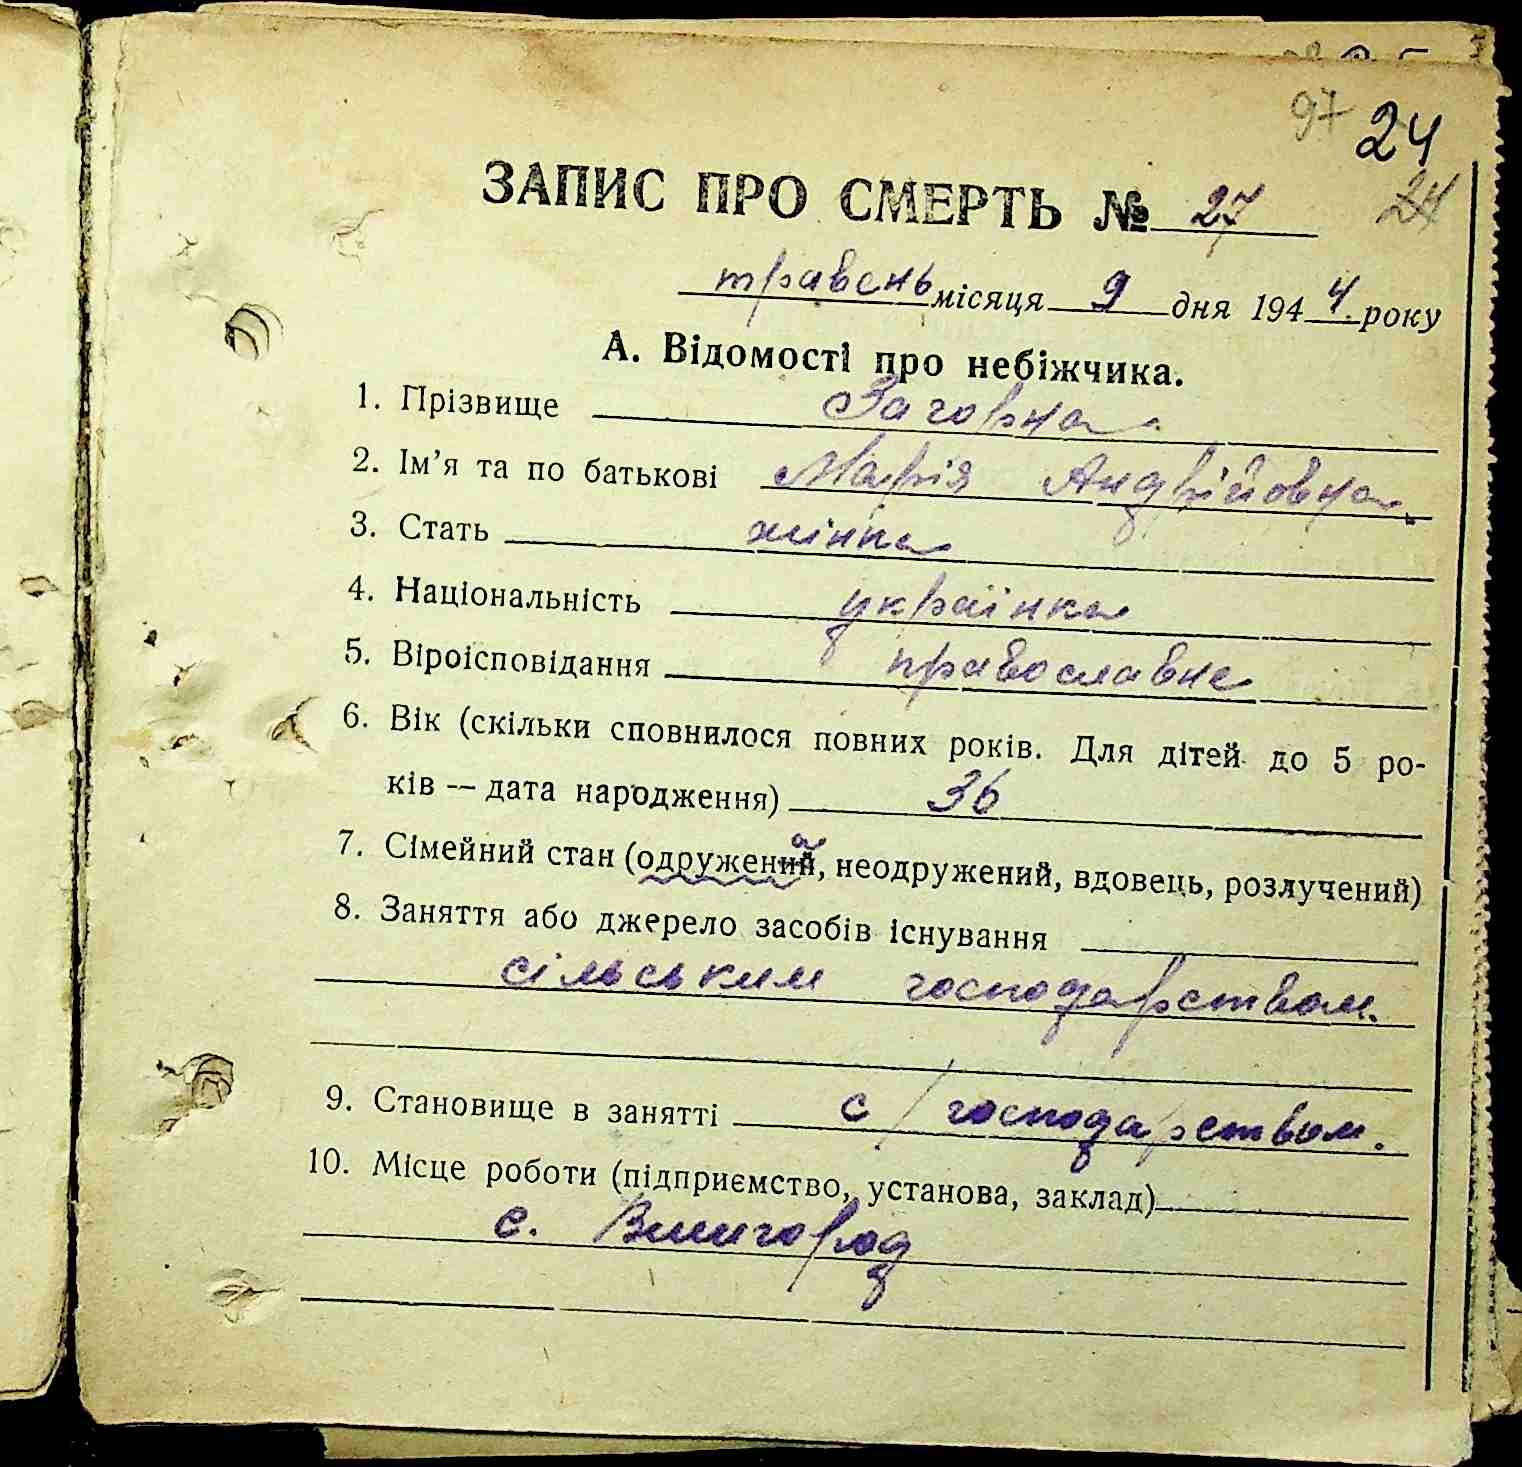 97 24
ЗАПИС ПРО СМЕРТЬ № 27 24
травень місяця 9 дня 1944 року
А. Відомості про небіжчика.
1. Прізвище Загорна
2. Ім’я та по батькові Марія Андрійовна
3. Стать жінка
4. Національність українка
5. Віроісповідання православне
6. Вік (скільки сповнилося повних років. Для дітей до 5 ро-
ків — дата народження) 36
7. Сімейний стан (одружений, неодружений, вдовець, розлучений)
8. Заняття або джерело засобів існування
сільським господарством.
9. Становище в занятті с/господарством.
10. Місце роботи (підприємство, установа, заклад)
с. Вишгород